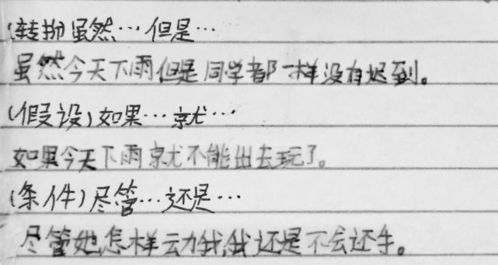 (转折)虽然…但是…
虽然今天下雨但是同学都一样没有迟到。
(假设)如果…就…
如果今天下雨就不能出去玩了。
(条件)尽管…还是…
尽管她怎样动我,我还是不会还手。